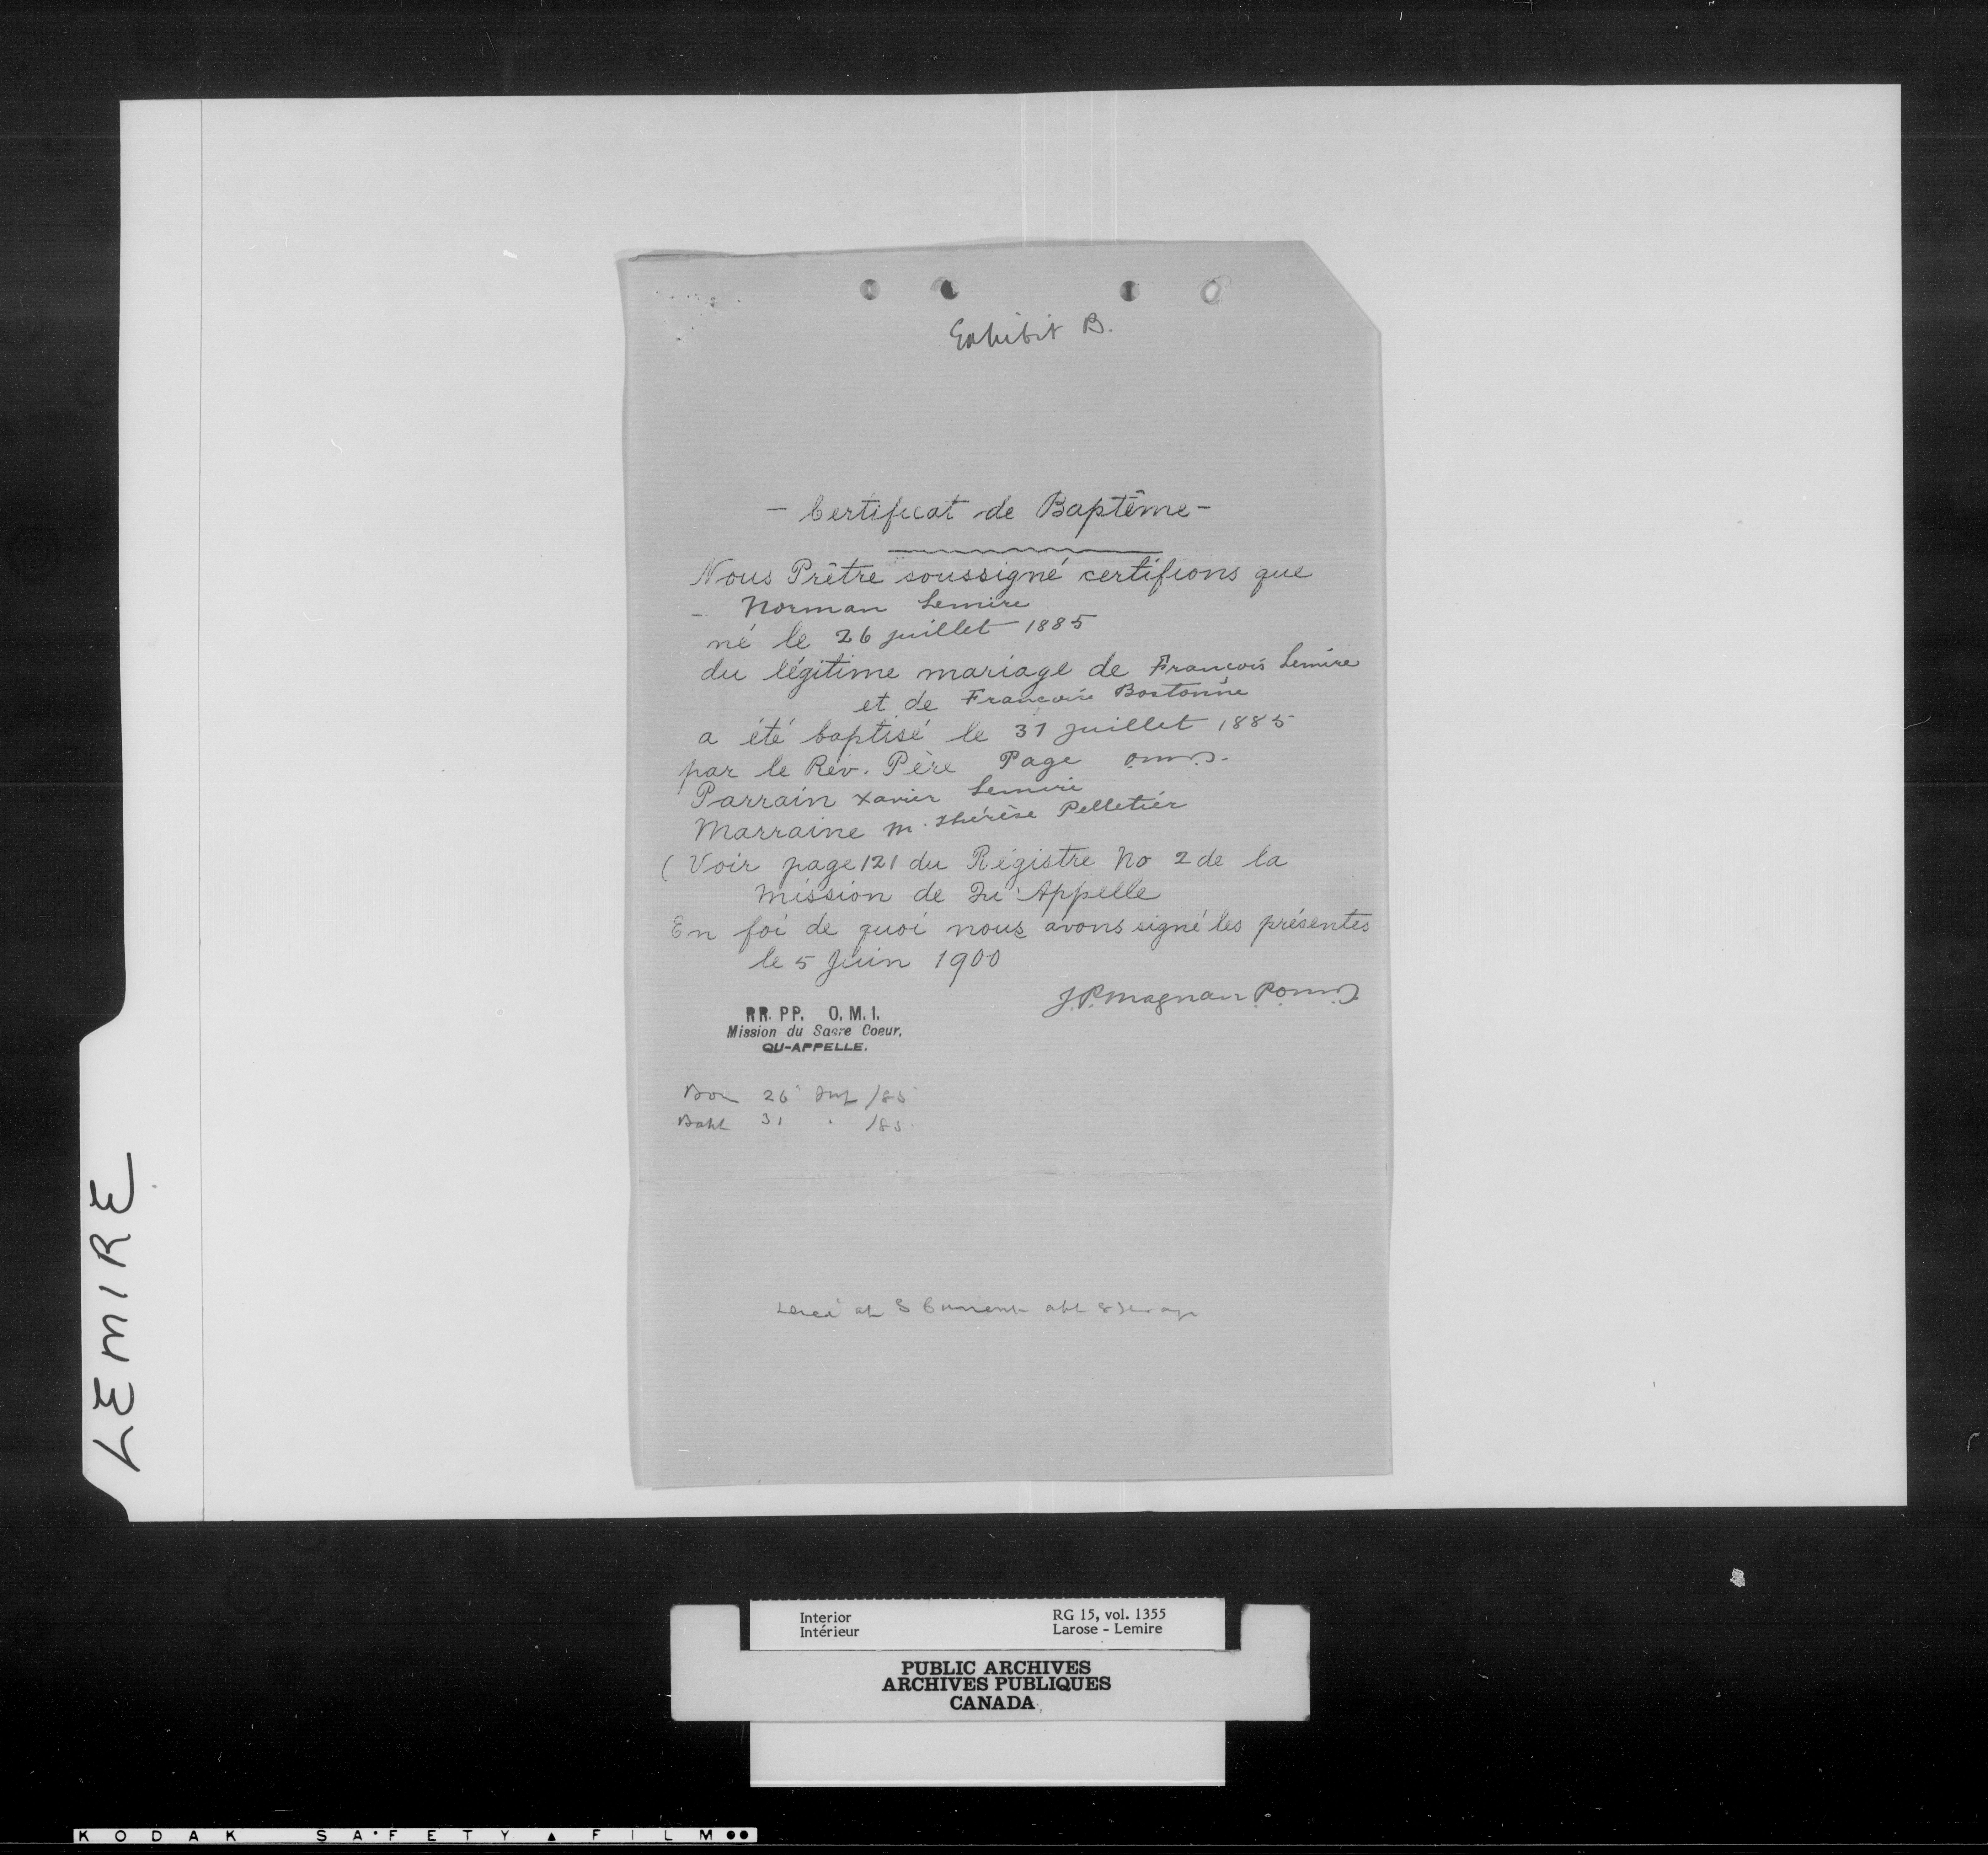 Exhibit B.
- Certificat de Baptême -
Nous Prêtre soussigné certifions que
- Norman Lemire
né le 26 juillet 1885
du légitime mariage de François Lemire
et de Françoise Bostonne
a été baptisé le 31 juillet 1885
par le Rév. Père Page o.m.i.
Parrain Xavier Lemire
Marraine M. Thérèse Pelletier
( Voir page 121 du Régistre No 2 de la
Mission de Qu'Appelle
En foi de quoi nous avons signé les présentes
le 5 Juin 1900
J.P. Magnan P.o.m.i.
RR. PP. O. M. I.
Mission du Sacre Coeur,
QU-APPELLE.
Born 26 July /85
Bapt 31 " /85.
at S Current abt 8
LEMIRE
Interior RG 15, vol. 1355
Intérieur Larose - Lemire
PUBLIC ARCHIVES
ARCHIVES PUBLIQUES
CANADA
KODAK SAFETY FILM